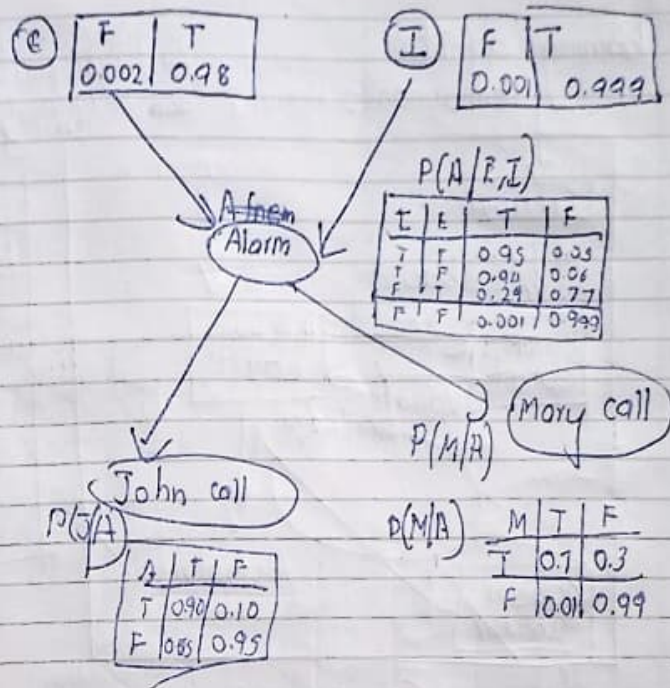 E F T
0.002 0.98
I F T
0.001 0.999
P(A/E,I)
Alarm
I E T F
T F 0.95 0.05
T F 0.94 0.06
F T 0.29 0.77
F F 0.001 0.999
Mary call
P(M/A)
John call
P(J/A)
A T F
T 0.90 0.10
F 0.95
P(M/A) M T F
T 0.7 0.3
F 0.01 0.99